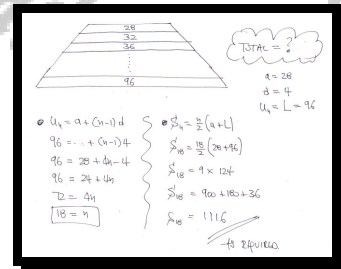 28
32
36
96
TOTAL = ?
a = 28
d = 4
Uₙ = L = 96
• Uₙ = a + (n-1)d
96 = ... + (n-1)4
96 = 28 + 4n - 4
96 = 24 + 4n
72 = 4n
18 = n
• Sₙ = n/2 (a+L)
S₁₈ = 18/2 (28+96)
S₁₈ = 9 × 124
S₁₈ = 900 + 180 + 36
S₁₈ = 1116
AS REQUIRED